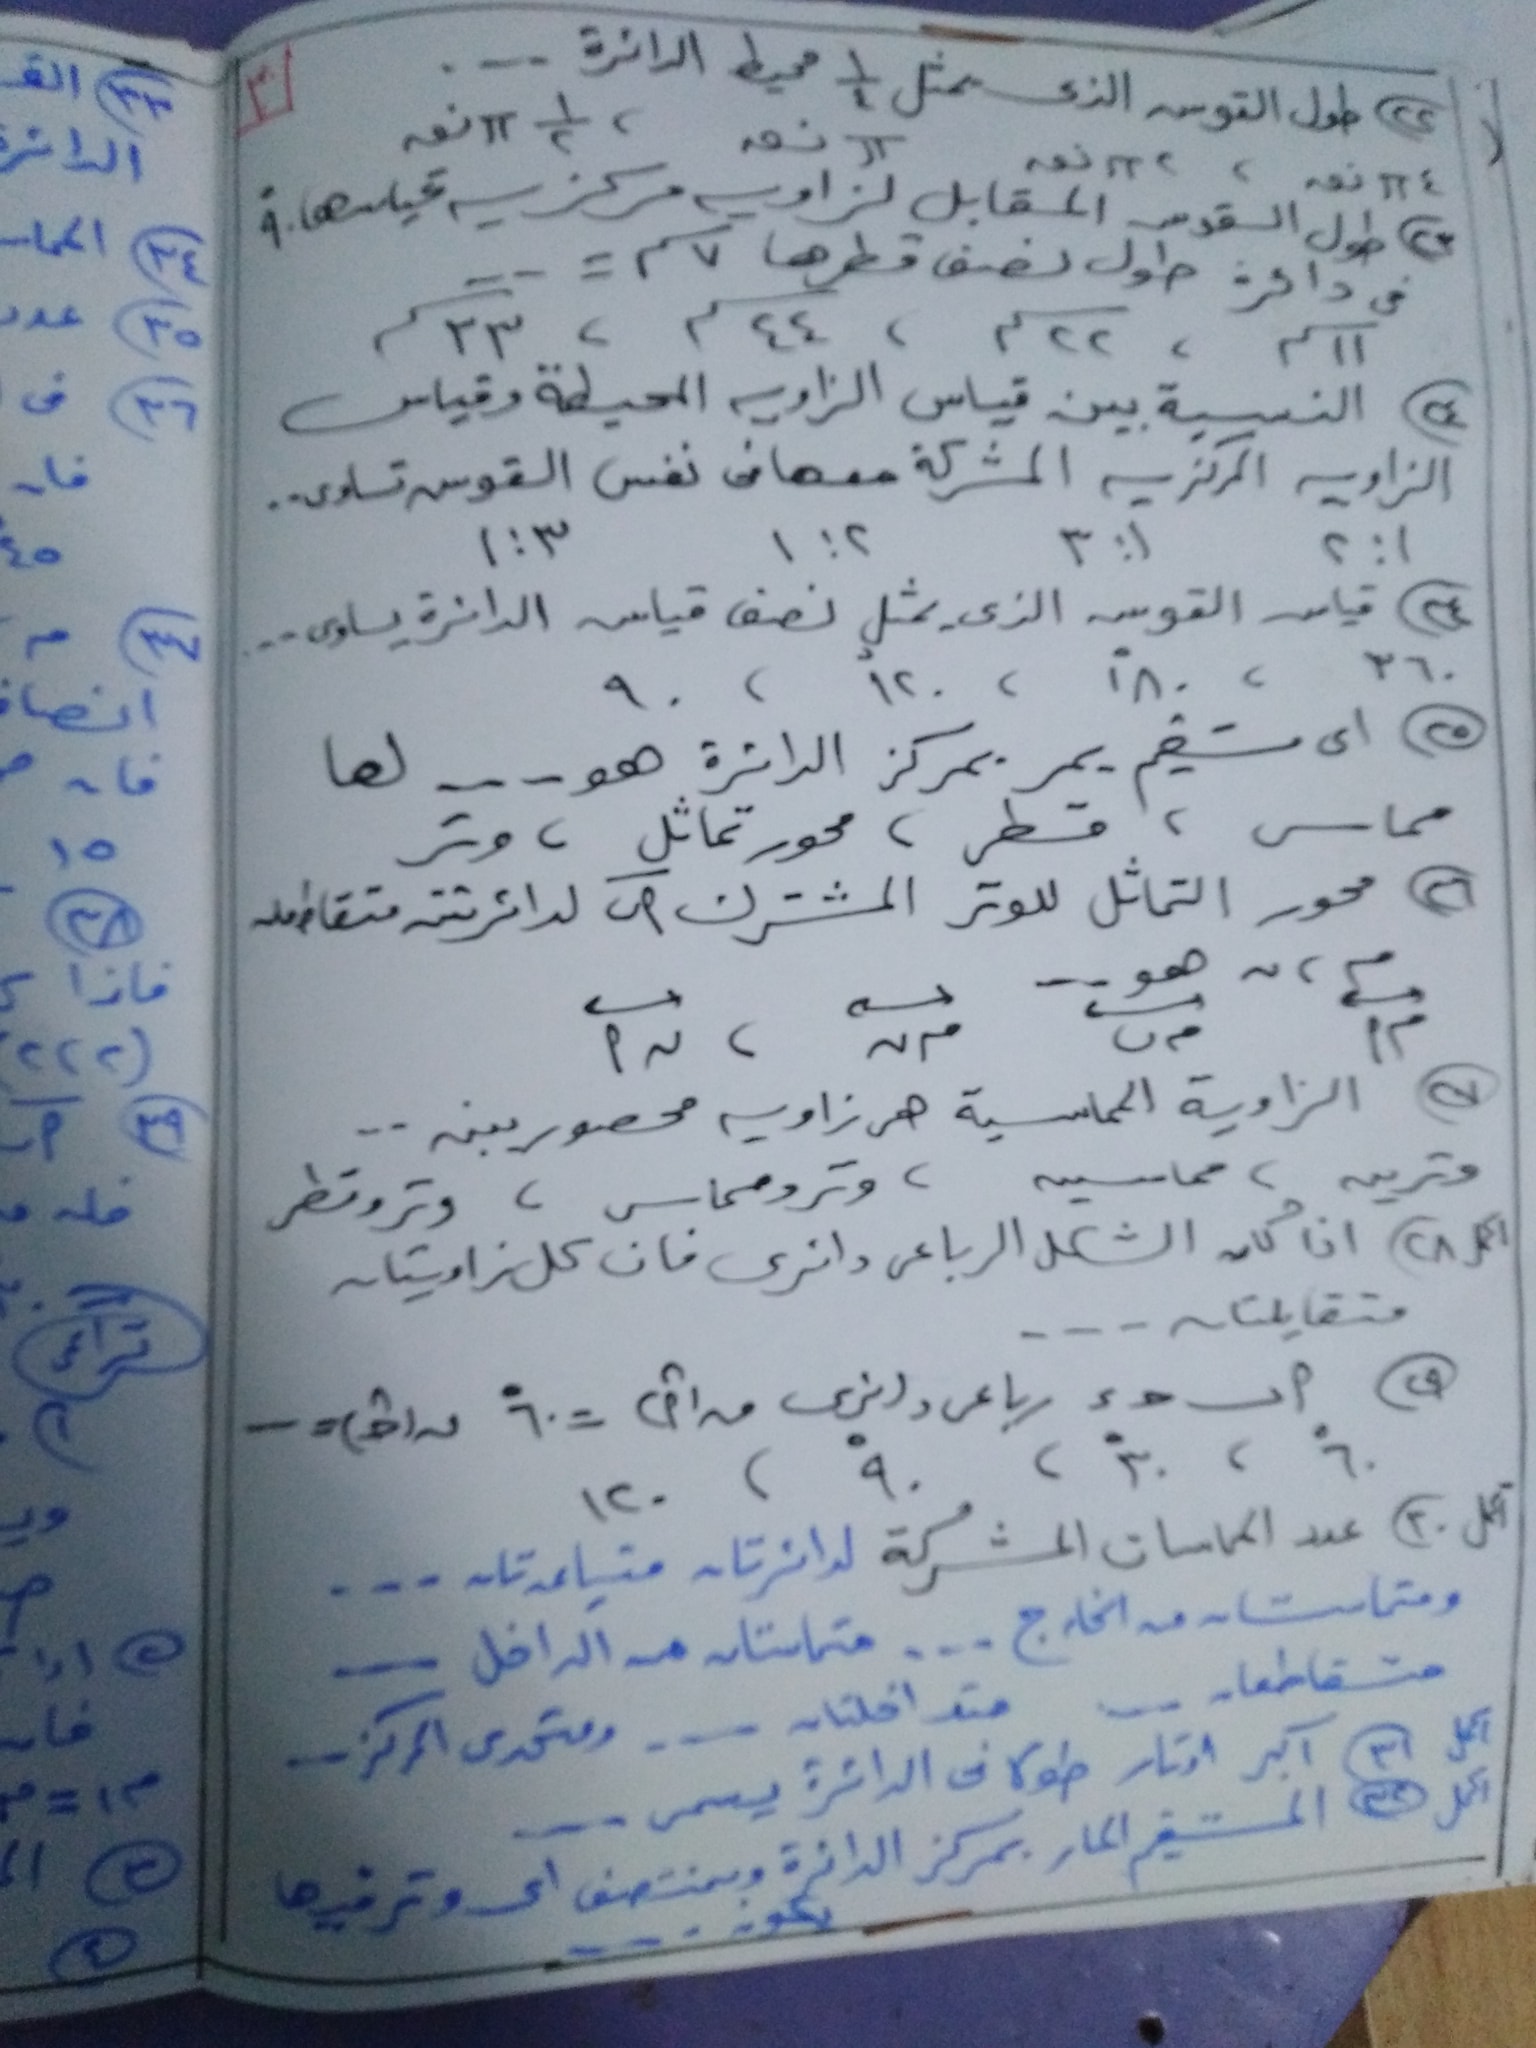 ٣
٢٢ طول القوس الذى يمثل ١/٤ محيط الدائرة ---
٤ π نق ، ٢ π نق ، π نق ، ١/٢ π نق
٢٣ طول القوس المقابل لزاويه مركزيه قياسها ٩٠°
فى دائرة طول نصف قطرها ٧ سم = ---
١١ سم ، ٢٢ سم ، ٤٤ سم ، ٣٣ سم
٢٤ النسبة بين قياس الزاويه المحيطة وقياس
الزاويه المركزيه المشتركة معها فى نفس القوس تساوى ..
١ : ٢ ١ : ٣ ٢ : ١ ٣ : ١
٢٤ قياس القوس الذى يمثل نصف قياس الدائرة يساوى ---
٣٦٠ ، ١٨٠° ، ١٢٠° ، ٩٠
٢٥ اى مستقيم يمر بمركز الدائرة هو --- لها
مماس ، قطر ، محور تماثل ، وتر
٢٦ محور التماثل للوتر المشترك أب لدائرتين متقاطعتين
م ، ن هو ---
م أ م ب م ن ، ن أ
٢٧ الزاوية المماسية هى زاويه محصور بين --
وترين ، مماسين ، وتر ومماس ، وتر وقطر
اكمل ٢٨ اذا كان الشكل الرباعى دائرى فان كل زاويتان
متقابلتان ---
٢٩ أ ب ح ء رباعى دائرى ق(أ) = ٦٠° ق(ح) = --
٦٠° ، ٣٠° ، ٩٠° ، ١٢٠
اكمل ٣٠ عدد المماسات المشتركة لدائرتان متباعدتان ---
ومتماستان من الخارج --- متماستان من الداخل ---
متقاطعان --- متداخلتان --- ومتحدى المركز --
اكمل ٣١ اكبر اوتار طولا فى الدائرة يسمى ---
اكمل ٣٢ المستقيم المار بمركز الدائرة وبمنتصف اى وتر فيها
يكون ---
٣٣ القـ
الدائرة
٣٤
٣٥ عدد
٣٦ فى
فان
٤٥
٣٧ م
فان
١٥
٣٨
فاذا
(٢،٢)
٣٩
فان
١٢ = م